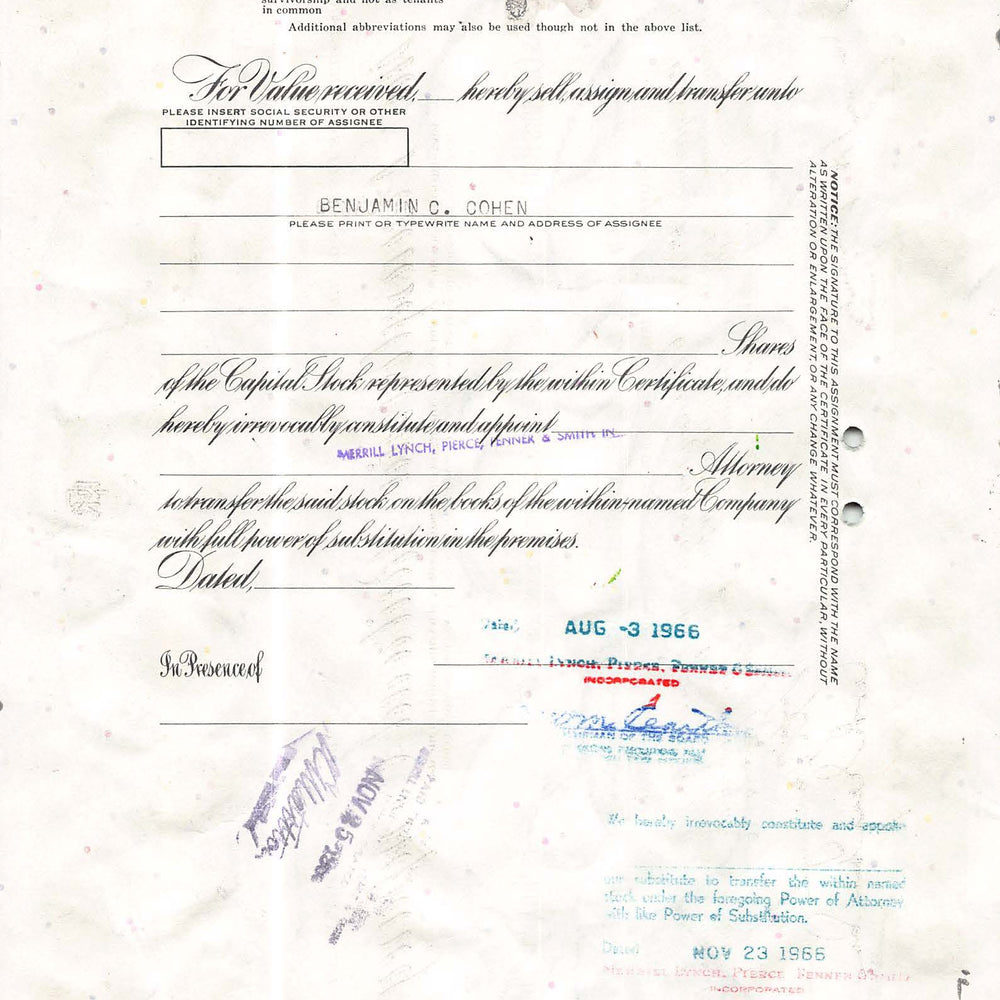 survivorship and not as tenants
in common
Additional abbreviations may also be used though not in the above list.
For Value received, hereby sell, assign, and transfer unto
PLEASE INSERT SOCIAL SECURITY OR OTHER
IDENTIFYING NUMBER OF ASSIGNEE
BENJAMIN C. COHEN
PLEASE PRINT OR TYPEWRITE NAME AND ADDRESS OF ASSIGNEE
Shares
of the Capital Stock represented by the within Certificate, and do
hereby irrevocably constitute and appoint
MERRILL LYNCH, PIERCE, FENNER & SMITH INC.
Attorney
to transfer the said stock on the books of the within-named Company
with full power of substitution in the premises.
Dated,
NOTICE: THE SIGNATURE TO THIS ASSIGNMENT MUST CORRESPOND WITH THE NAME
AS WRITTEN UPON THE FACE OF THE CERTIFICATE IN EVERY PARTICULAR, WITHOUT
ALTERATION OR ENLARGEMENT, OR ANY CHANGE WHATEVER.
Dated AUG -3 1966
In Presence of
MERRILL LYNCH, PIERCE, FENNER & SMITH
INCORPORATED
CHAIRMAN OF THE BOARD
NOV 25
We hereby irrevocably constitute and appoint
our substitute to transfer the within named
stock under the foregoing Power of Attorney
with like Power of Substitution.
Dated NOV 23 1966
MERRILL LYNCH, PIERCE FENNER & SMITH
INCORPORATED